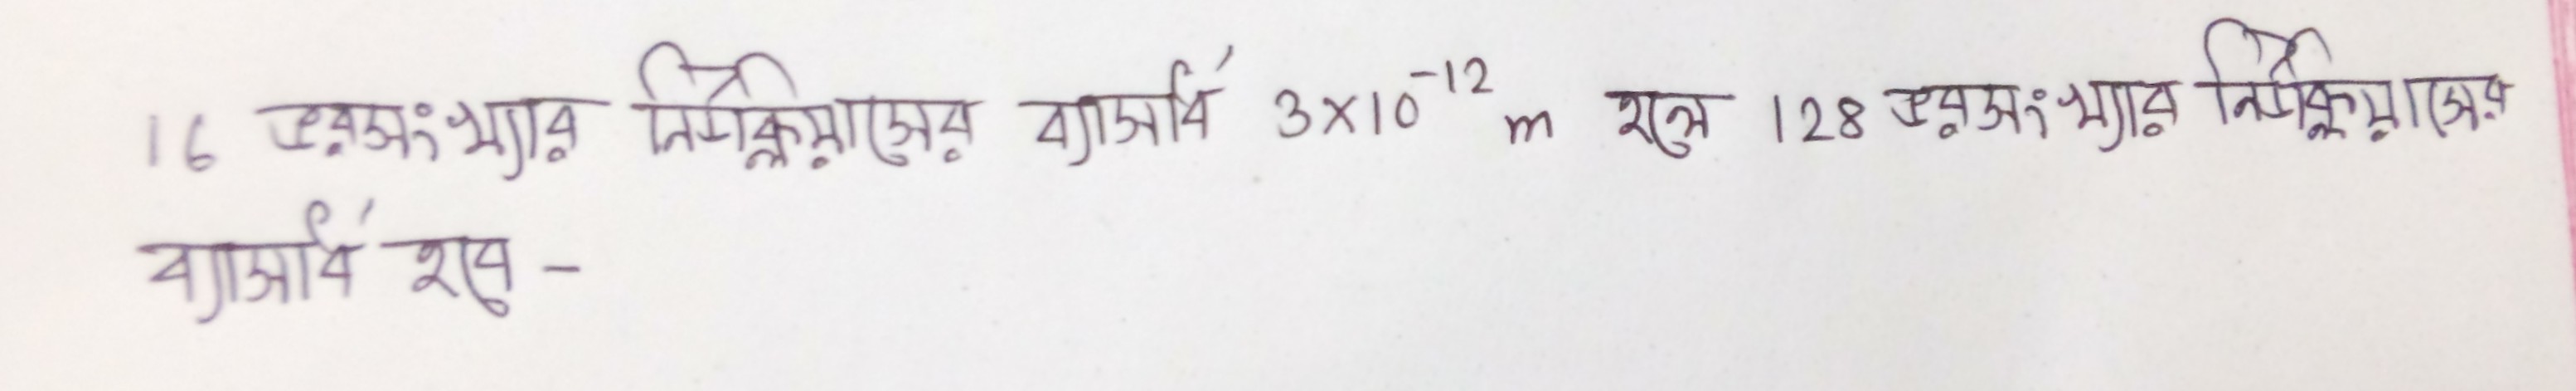 16 ভরসংখ্যার নিউক্লিয়াসের ব্যাসার্ধ 3×10⁻¹² m হলে 128 ভরসংখ্যার নিউক্লিয়াসের
ব্যাসার্ধ হবে –